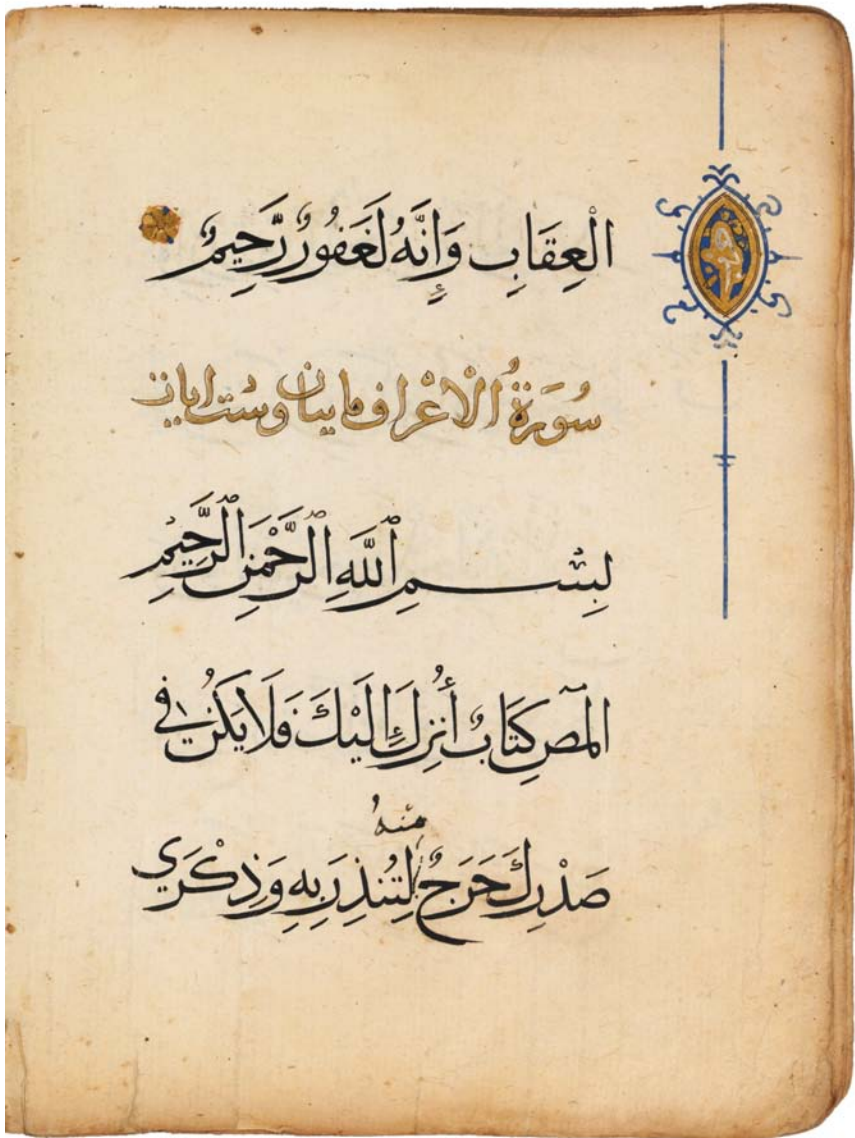 الْعِقَابِ وَإِنَّهُ لَغَفُورٌ رَّحِيمٌ
سُورَةُ الْاَعْرَاف مايتان وست ايات
بِسْمِ ٱللَّهِ ٱلرَّحْمَنِ ٱلرَّحِيمِ
الٓمص كِتَابٌ أُنزِلَ إِلَيْكَ فَلَا يَكُنْ فِي
منهُ
صَدْرِكَ حَرَجٌ لِتُنذِرَ بِهِ وَذِكْرَي